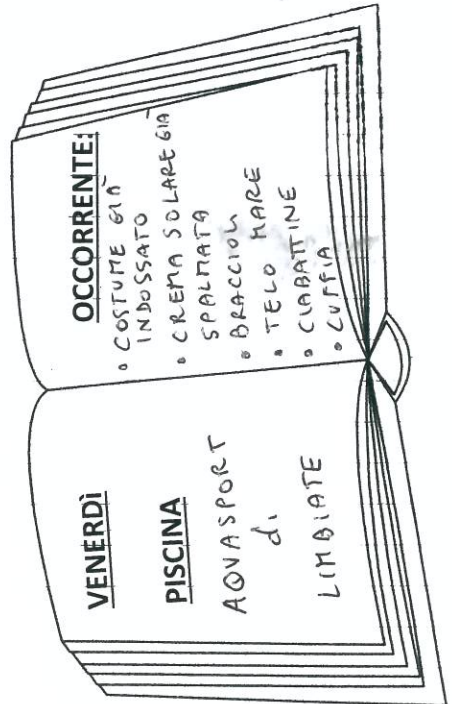 VENERDÌ
PISCINA
AQVASPORT
di
LIMBIATE
OCCORRENTE:
• COSTUME GIÀ
INDOSSATO
• CREMA SOLARE GIÀ
SPALMATA
• BRACCIOLI
• TELO MARE
• CIABATTINE
• CUFFIA